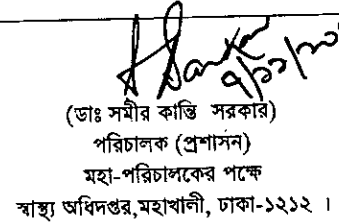 ৭/১১/২০
(ডাঃ সমীর কান্তি সরকার)
পরিচালক (প্রশাসন)
মহা-পরিচালকের পক্ষে
স্বাস্থ্য অধিদপ্তর,মহাখালী, ঢাকা-১২১২ ।